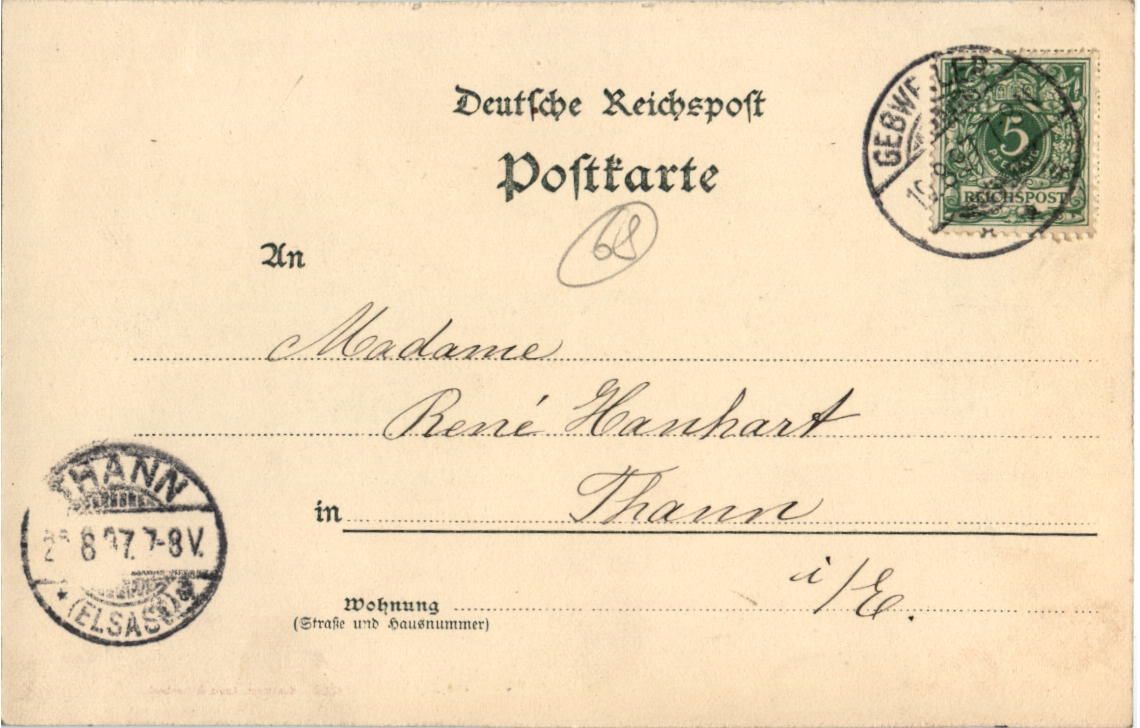 Deutsche Reichspost
Postkarte
GEBWEILER
5
PFENNIG
REICHSPOST
68
An
Madame
René Hanhart
in Thann
i/E.
THANN
8 97. 7-8 V.
* (ELSASS)
Wohnung
(Straße und Hausnummer)